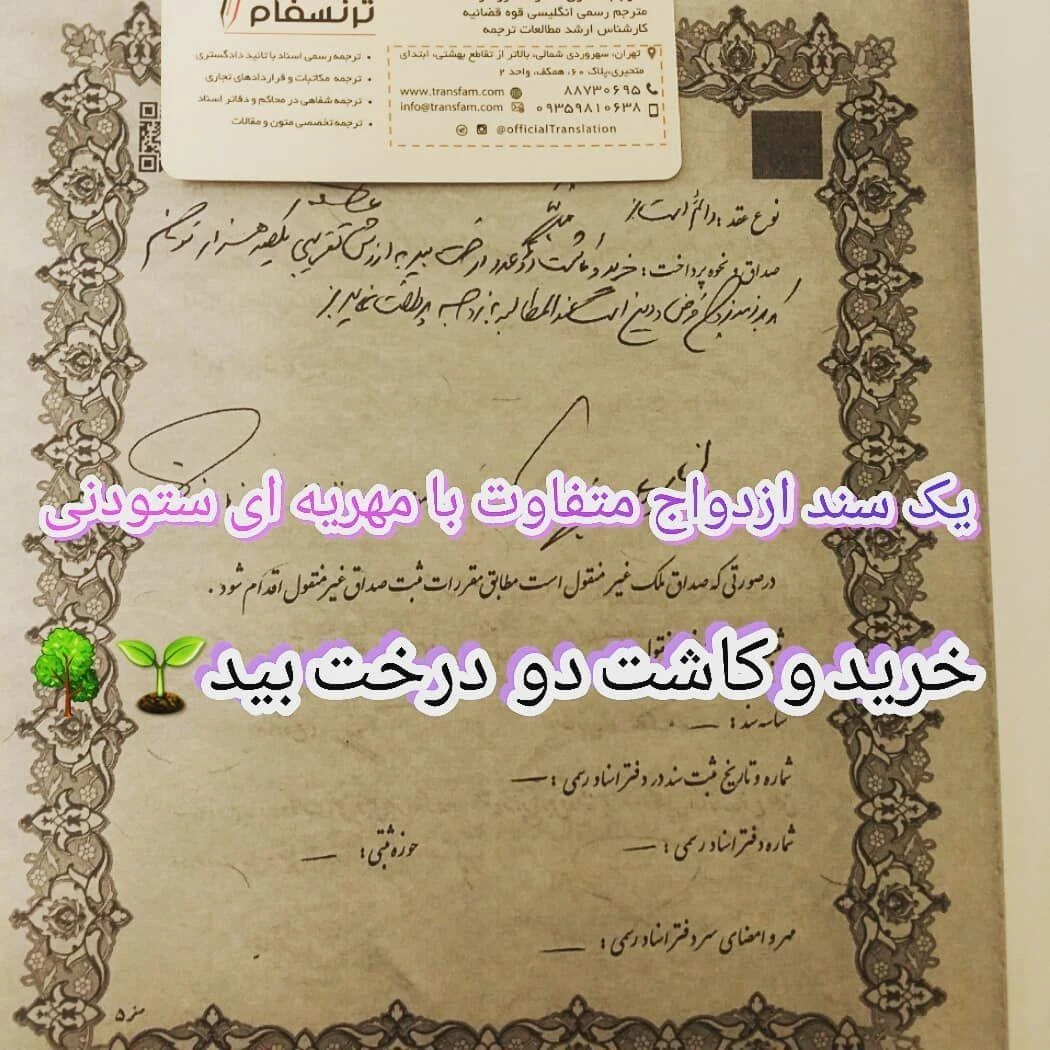 ترنسفام
ترجمه رسمی اسناد با تائید دادگستری
ترجمه مکاتبات و قراردادهای تجاری
ترجمه شفاهی در محاکم و دفاتر اسناد
ترجمه تخصصی متون و مقالات
مترجم رسمی انگلیسی قوه قضائیه
کارشناس ارشد مطالعات ترجمه
تهران، سهروردی شمالی، بالاتر از تقاطع بهشتی، ابتدای
متحیری، پلاک ۶۰، همکف، واحد ۲
www.transfam.com ۸۸۷۳۰۶۹۵
info@transfam.com ۰۹۳۵۹۸۱۰۶۳۸
@officialTranslation
نوع عقد: دائم است
صداق و نحوه پرداخت: خرید و کاشت دو عدد درخت بید به ارزش تقریبی یکصد هزار تومان
عندالمطالبه به زوجه پرداخت نماید
یک سند ازدواج متفاوت با مهریه ای ستودنی
درصورتی که صداق ملک غیر منقول است مطابق مقررات ثبت صداق غیر منقول اقدام شود.
خرید و کاشت دو درخت بید
شناسه سند:
شماره و تاریخ ثبت سند در دفتر اسناد رسمی:
شماره دفتر اسناد رسمی: حوزه ثبتی:
مهر و امضای سردفتر اسناد رسمی: